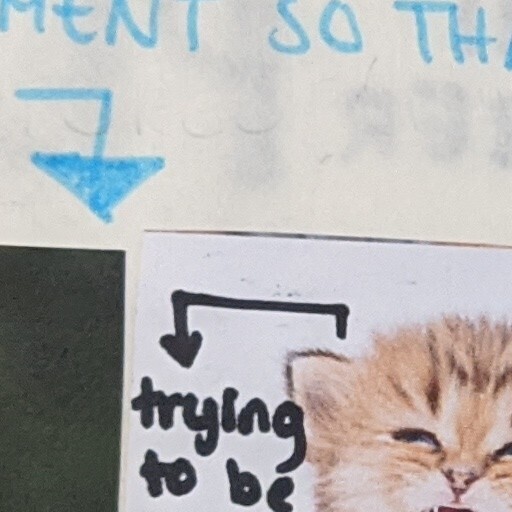 MENT SO THA
trying
to be